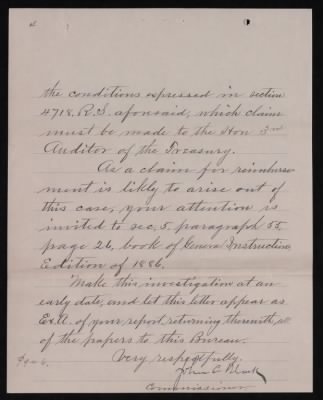 the conditions expressed in section
4718. R.S. aforesaid, which claim
must be made to the Hon 3rd
Auditor of the Treasury.
As a claim for reimburse-
ment is likely to arise out of
this case, your attention is
invited to sec. 5. paragraph 55,
page 26, book of General Instructions
Edition of 1886.
Make this investigation at an
early date, and let this letter appear as
Ex. A. of your report, returning therewith, all
of the papers to this Bureau.
Very respectfully,
John C. Black
Commissioner